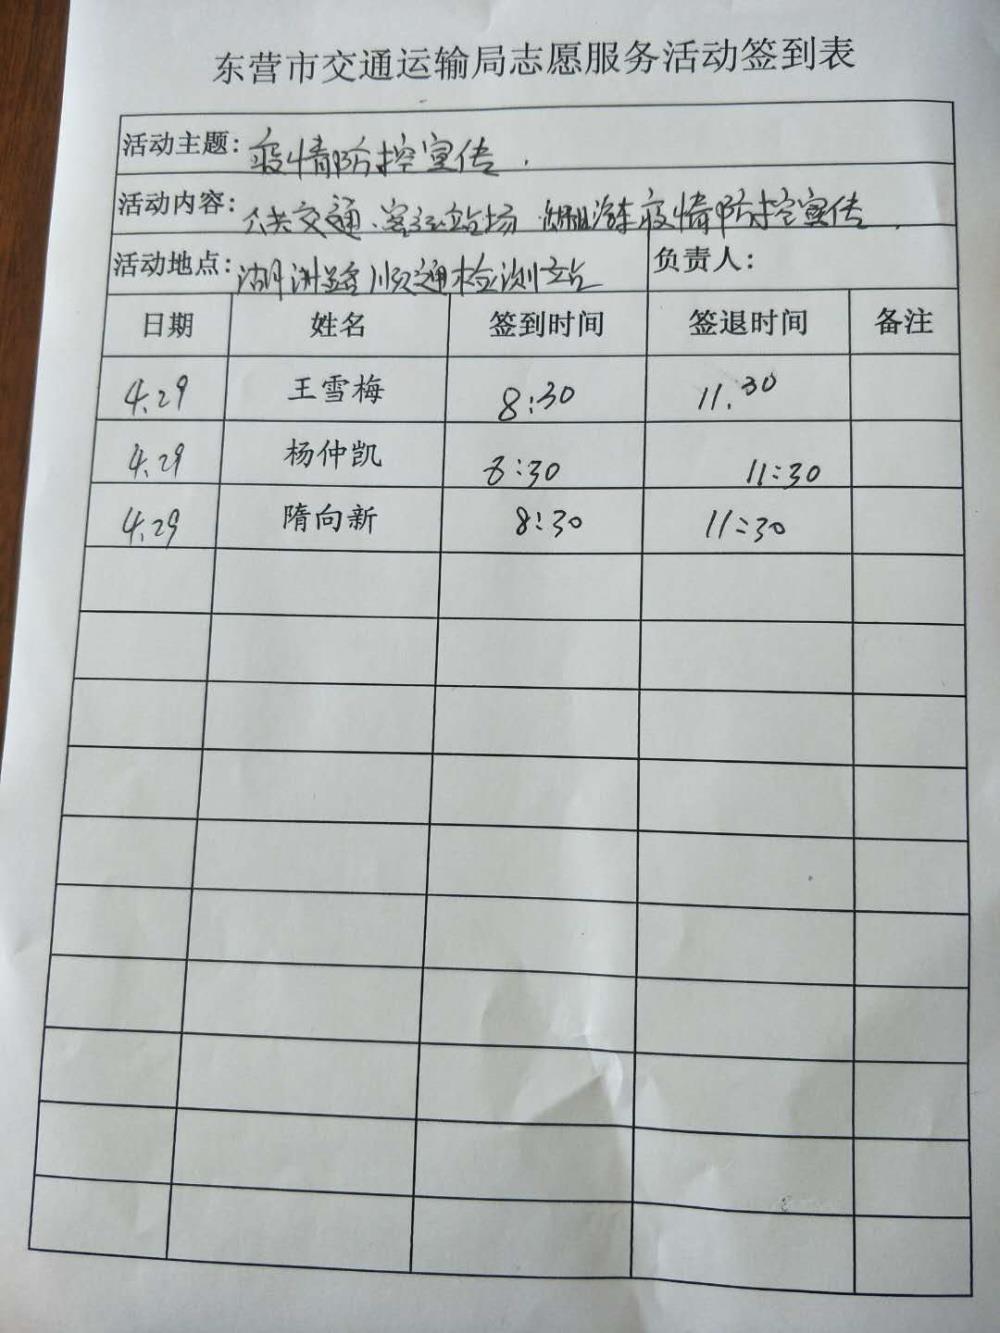 东营市交通运输局志愿服务活动签到表
活动主题: 疫情防控宣传.
活动内容: 公共交通、客运站场 疫情防控宣传.
活动地点: 顺通检测站 负责人:
日期 姓名 签到时间 签退时间 备注
4.29 王雪梅 8:30 11.30
4.29 杨仲凯 8:30 11:30
4.29 隋向新 8:30 11:30